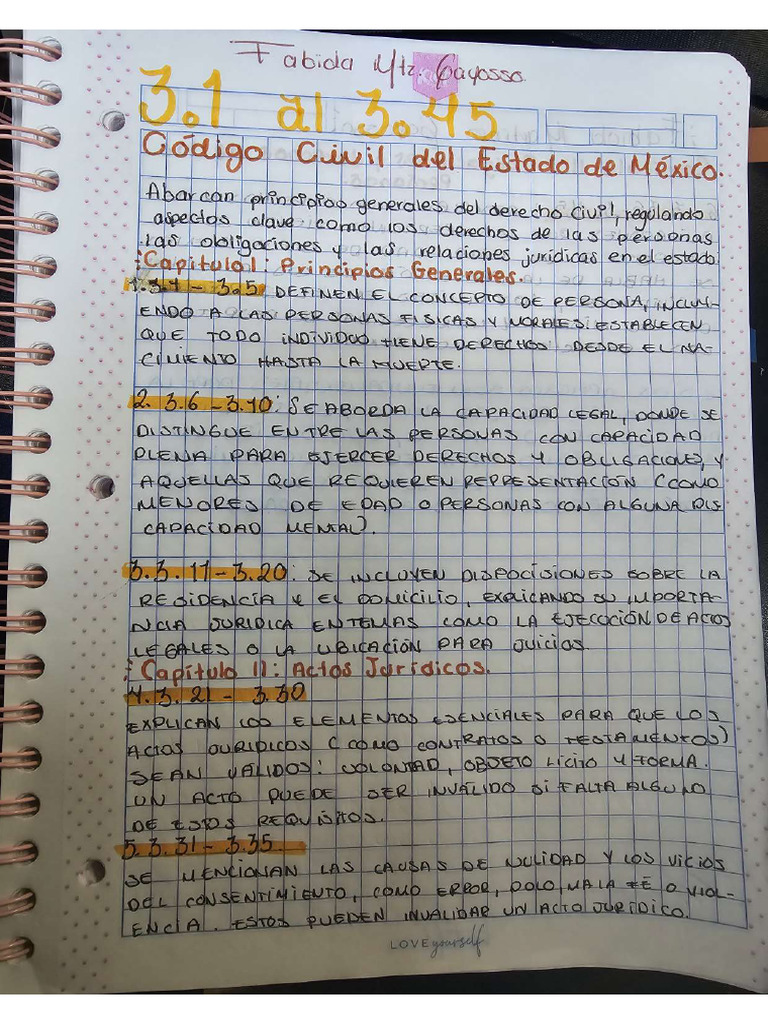 Fabiola Mtz. Gayosso.
3.1 al 3.45
Código Civil del Estado de México.
Abarcan principios generales del derecho civil, regulando
aspectos clave como los derechos de las personas
las obligaciones y las relaciones jurídicas en el estado
Capitulo I: Principios Generales.
1. 3.1 - 3.5 DEFINEN EL CONCEPTO DE PERSONA, INCLUY-
ENDO A LAS PERSONAS FISICAS Y MORALES. ESTABLECEN
QUE TODO INDIVIDUO TIENE DERECHOS DESDE EL NA-
CIMIENTO HASTA LA MUERTE.
2. 3.6 - 3.10: SE ABORDA LA CAPACIDAD LEGAL, DONDE SE
DISTINGUE ENTRE LAS PERSONAS CON CAPACIDAD
PLENA PARA EJERCER DERECHOS Y OBLIGACIONES, Y
AQUELLAS QUE REQUIEREN REPRESENTACIÓN (COMO
MENORES DE EDAD O PERSONAS CON ALGUNA DIS
CAPACIDAD MENTAL).
3. 3.11 - 3.20: SE INCLUYEN DISPOCISIONES SOBRE LA
RESIDENCIA Y EL DOMICILIO, EXPLICANDO SU IMPORTA-
NCIA JURIDICA EN TEMAS COMO LA EJECOCIÓN DE ACTOS
LEGALES O LA UBICACIÓN PARA JUICIOS.
Capítulo II: Actos Jurídicos.
4. 3. 21 - 3.30
EXPLICAN LOS ELEMENTOS ESENCIALES PARA QUE LOS
ACTOS JURIDICOS (COMO CONTRATOS O TESTAMENTOS)
SEAN VÁLIDOS: VOLONTAD, OBJETO LÍCITO Y FORMA.
UN ACTO PUEDE SER INVÁLIDO SI FALTA ALGUNO
DE ESTOS REQUÍSITOS.
5. 3. 31 - 3.35
SE MENCIONAN LAS CAUSAS DE NULIDAD Y LOS VICIOS
DEL CONSENTIMIENTO, COMO ERROR, DOLO, MALA FÉ O VIOL-
ENCIA. ESTOS PUEDEN INVALIDAR UN ACTO JURÍDICO.
LOVE yourself